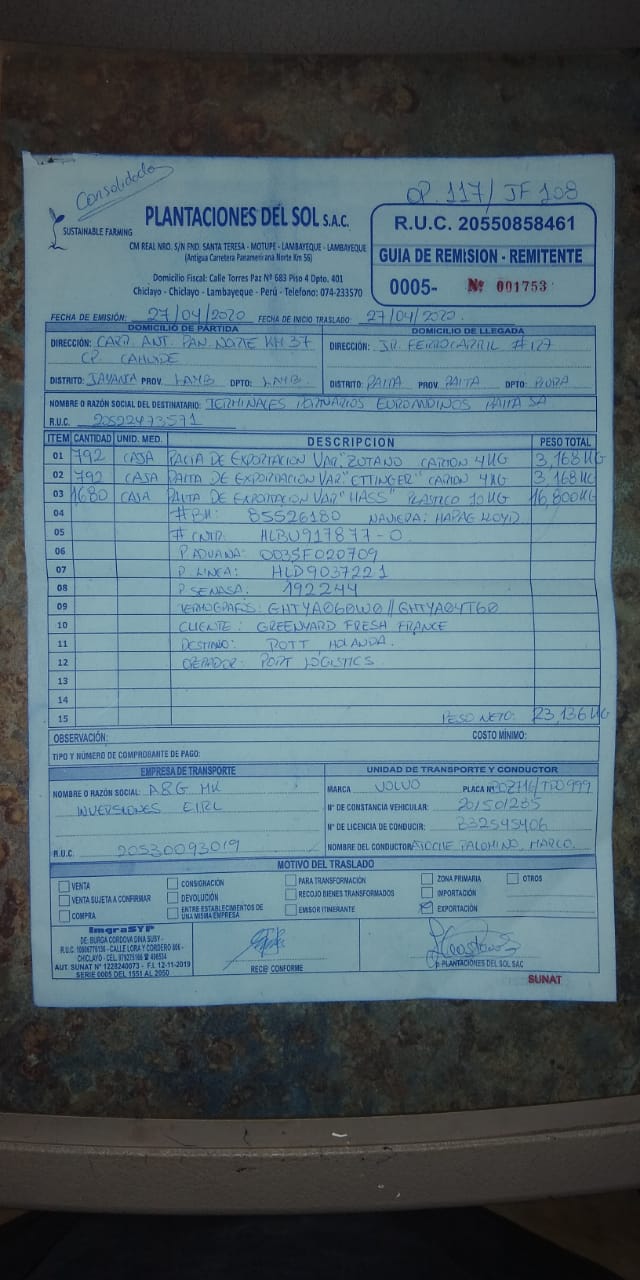 Consolidado
OP. 117/ JF 108
SUSTAINABLE FARMING
PLANTACIONES DEL SOL S.A.C.
CM REAL NRO. S/N FND. SANTA TERESA - MOTUPE - LAMBAYEQUE - LAMBAYEQUE
(Antigua Carretera Panamericana Norte Km 56)
Domicilio Fiscal: Calle Torres Paz Nº 683 Piso 4 Dpto. 401
Chiclayo - Chiclayo - Lambayeque - Perú - Telefono: 074-233570
R.U.C. 20550858461
GUIA DE REMISION - REMITENTE
0005- Nº 001753
FECHA DE EMISIÓN: 27/04/2020 FECHA DE INICIO TRASLADO: 27/04/2020.
DOMICILIO DE PARTIDA
DIRECCIÓN: CARR. ANT. PAN. NORTE KM 37
CP. CAHUIDE
DISTRITO: JAYANCA PROV. LAMB. DPTO: LAMB.
DOMICILIO DE LLEGADA
DIRECCIÓN: JR. FERROCARRIL #127
DISTRITO: PAITA PROV. PAITA DPTO: PIURA
NOMBRE O RAZÓN SOCIAL DEL DESTINATARIO: TERMINALES PORTUARIOS EUROANDINOS PAITA SA
R.U.C. 20522473571
ITEM CANTIDAD UNID. MED. DESCRIPCION PESO TOTAL
01 792 CAJA PALTA DE EXPORTACION VAR. "ZUTANO" CARTON 4KG 3,168KG
02 792 CAJA PALTA DE EXPORTACION VAR "ETTINGER" CARTON 4KG 3,168KG
03 1680 CAJA PALTA DE EXPORTACION VAR "HASS" PLASTICO 10KG 16,800KG
04 # BK: 85526180 NAVIERA: HAPAG LLOYD
05 # CNTR: HLBU917877-0
06 P. ADUANA: 003SF020709
07 P. LINEA: HLD9037221
08 P. SENASA: 192244
09 TERMOGRAFOS: GHTYA060W0 // GHTYA04T60
10 CLIENTE: GREENYARD FRESH FRANCE
11 DESTINO: ROTT, HOLANDA.
12 OPERADOR: PORT LOGISTICS
13
14
15 PESO NETO: 23,136KG
OBSERVACIÓN: COSTO MÍNIMO:
TIPO Y NÚMERO DE COMPROBANTE DE PAGO:
EMPRESA DE TRANSPORTE
NOMBRE O RAZÓN SOCIAL: A&G MK
INVERSIONES EIRL
R.U.C. 20530093019
UNIDAD DE TRANSPORTE Y CONDUCTOR
MARCA VOLVO PLACA Nº
Nº DE CONSTANCIA VEHICULAR: 201501235
Nº DE LICENCIA DE CONDUCIR:
NOMBRE DEL CONDUCTOR: PALOMINO, MARCO.
MOTIVO DEL TRASLADO
VENTA CONSIGNACIÓN PARA TRANSFORMACIÓN ZONA PRIMARIA OTROS
VENTA SUJETA A CONFIRMAR DEVOLUCIÓN RECOJO BIENES TRANSFORMADOS IMPORTACIÓN
COMPRA ENTRE ESTABLECIMIENTOS DE UNA MISMA EMPRESA EMISOR ITINERANTE EXPORTACIÓN
ImgraSYP
DE: BURGA CORDOVA DINA SUSY -
CHICLAYO - CEL.
AUT. SUNAT Nº 1228240073 - F.I. 12-11-2019
SERIE 0005 DEL 1551 AL 2050
RECIBI CONFORME
p. PLANTACIONES DEL SOL SAC
SUNAT